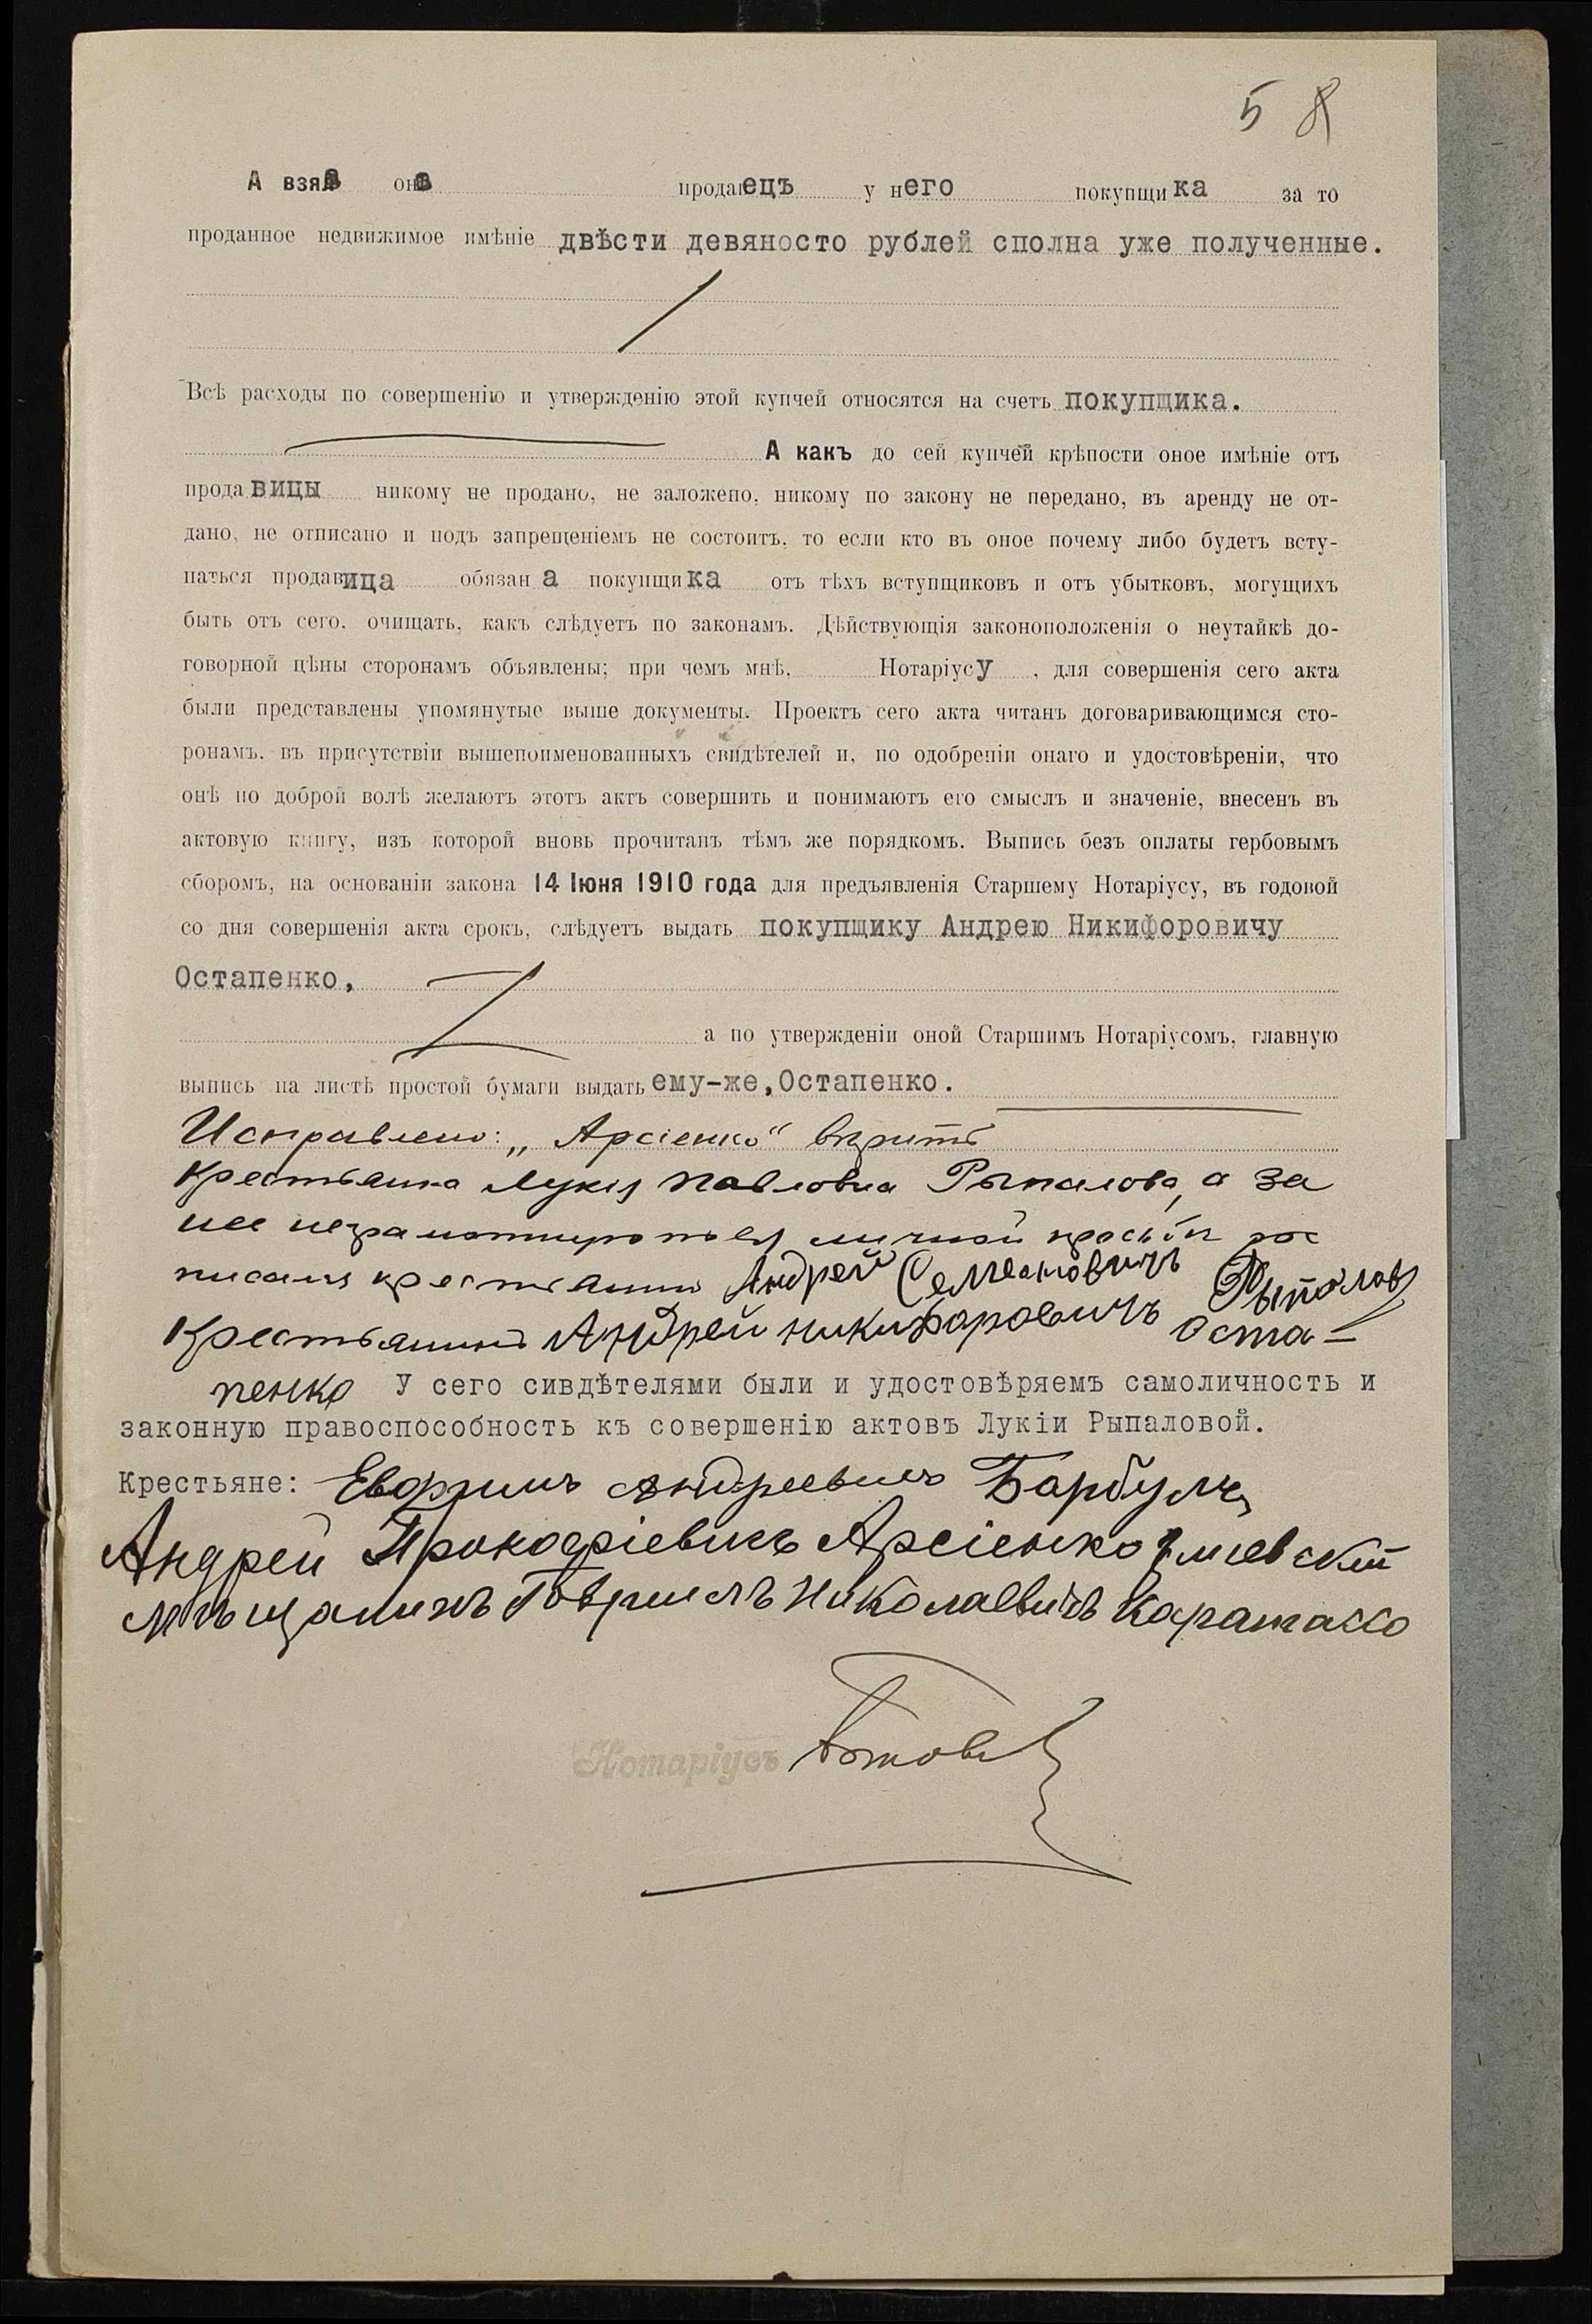 5 8
А взяла она продавецъ у него покупщика за то
проданное недвижимое имѣніе двѣсти девяносто рублей сполна уже полученные.
Всѣ расходы по совершенію и утвержденію этой купчей относятся на счетъ покупщика.
А какъ до сей купчей крѣпости оное имѣніе отъ
продавицы никому не продано, не заложено, никому по закону не передано, въ аренду не от-
дано, не отписано и подъ запрещеніемъ не состоитъ, то если кто въ оное почему либо будетъ всту-
паться продавица обязана покупщика отъ тѣхъ вступщиковъ и отъ убытковъ, могущихъ
быть отъ сего, очищать, какъ слѣдуетъ по законамъ. Дѣйствующія законоположенія о неутайкѣ до-
говорной цѣны сторонамъ объявлены; при чемъ мнѣ, Нотаріусу, для совершенія сего акта
были представлены упомянутые выше документы. Проектъ сего акта читанъ договаривающимся сто-
ронамъ, въ присутствіи вышепоименованныхъ свидѣтелей и, по одобреніи онаго и удостовѣреніи, что
онѣ по доброй волѣ желаютъ этотъ актъ совершить и понимаютъ его смыслъ и значеніе, внесенъ въ
актовую книгу, изъ которой вновь прочитанъ тѣмъ же порядкомъ. Выпись безъ оплаты гербовымъ
сборомъ, на основаніи закона 14 Іюня 1910 года для предъявленія Старшему Нотаріусу, въ годовой
со дня совершенія акта срокъ, слѣдуетъ выдать покупщику Андрею Никифоровичу
Остапенко,
а по утвержденіи оной Старшимъ Нотаріусомъ, главную
выпись на листѣ простой бумаги выдать ему-же, Остапенко.
Исправлено: „Арсіенко“ вѣрить
Крестьянка Лукія Павловна Рыпалова, а за
нее неграмотную по ея личной просьбѣ рос
писался крестьянинъ Андрей Семеоновичъ Рыпалов
Крестьянинъ Андрей Никифоровичъ Оста-
пенко У сего сивдѣтелями были и удостовѣряемъ самоличность и
законную правоспособность къ совершенію актовъ Лукіи Рыпаловой.
Крестьяне: Евфимъ Андреевичъ Барбулъ,
Андрей Прокофіевичъ Арсіенко Змиевский
Мѣщанинъ Гавриилъ Николаевичъ
Нотаріусъ